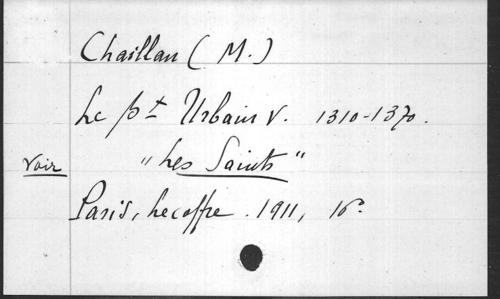 Chaillan (M.)
Le bt Urbain V. 1310-1370.
voir "Les Saints"
Paris, Lecoffre. 1911, 16°